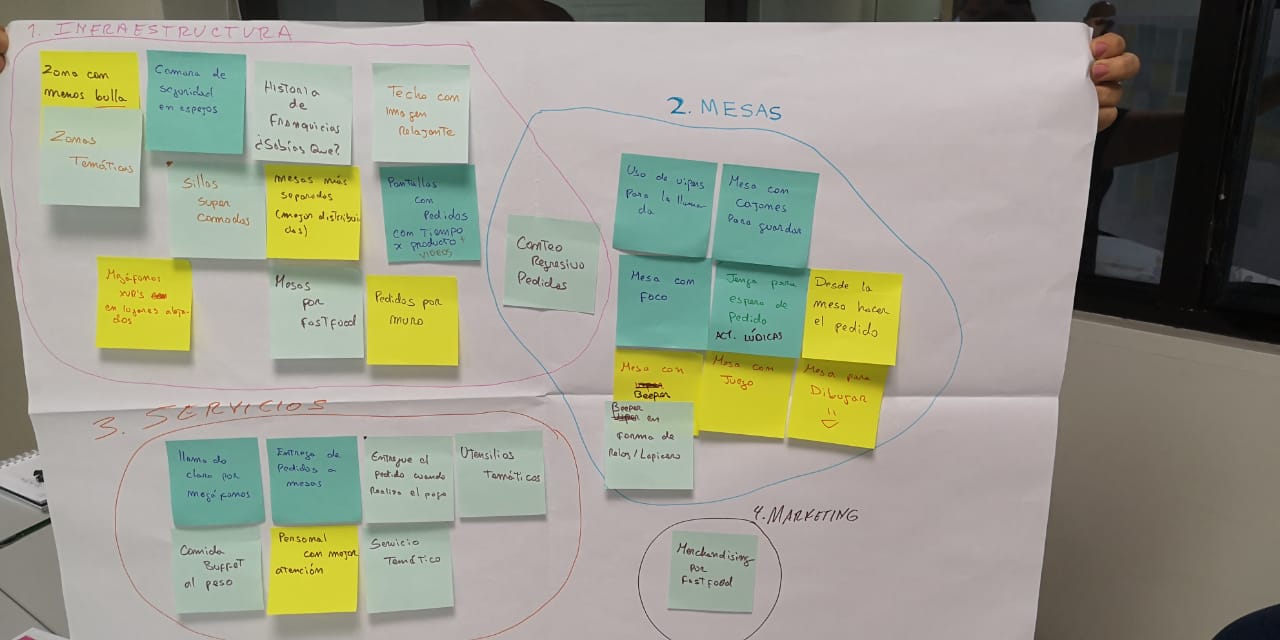 1. INFRAESTRUCTURA
Zona con
menos bulla
Zonas
Temáticas
Camara de
seguridad
en espejos
Historia
de
Franquicias
¿Sabías Que?
Techo con
Imagen
Relajante
Sillas
Super
Comodas
Mesas más
separadas
(mejor distribui
das)
Pantallas
con
Pedidos
con Tiempo
x producto +
VIDEOS
Megáfonos
en lugares aleja-
dos
Mesas
por
FastFood
Pedidos por
muro
Conteo
Regresivo
Pedidos
2. MESAS
Uso de vipers
Para la llama
da
Mesa con
Cajones
Para guardar
Mesa con
Foco
Jenga para
espera de
Pedido
ACT. LÚDICAS
Desde la
mesa hacer
el pedido
Mesa con
Beeper
Mesa con
Juego
Mesa para
Dibujar
Beeper
en
forma de
Reloj/Lapicero
3. SERVICIOS
llamado
claro por
megáfonos
Entrega de
Pedidos a
mesas
Entregue el
Pedido cuando
Realiza el pago
Utensilios
Temáticos
Comida
Buffet
al peso
Personal
con mejor
atención
Servicio
Temático
4. MARKETING
Merchandising
Por
FastFood